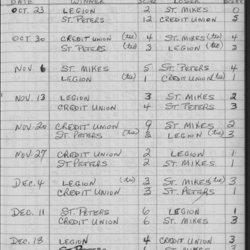 DATE WINNER SCORE LOSER SCORE
OCT 23 LEGION 2 ST. MIKES 2
ST. PETERS 12 CREDIT UNION 5
OCT 30 CREDIT UNION (tie) 4 ST. MIKES (tie) 4
ST. PETERS (tie) 3 LEGION (tie) 3
NOV 6 ST. MIKES 5 ST. PETERS 4
LEGION (tie) 1 CREDIT UNION (tie) 1
NOV. 13 LEGION 3 ST. MIKES 2
CREDIT UNION 4 ST. PETERS 3
NOV 20 CREDIT UNION 9 ST. MIKES 2
ST. PETERS (tie) LEGION (tie) 3
NOV 27 CREDIT UNION 2 LEGION 1
ST. PETERS 2 ST. MIKES 1
DEC. 4 LEGION (tie) 3 ST. MIKES (tie) 3
CREDIT UNION 3 ST. PETERS 1
DEC. 11 ST. PETERS 6 LEGION 1
CREDIT UNION 6 ST. MIKES 3
DEC. 18 LEGION 4 CREDIT UNION 3
ST. PETERS ST. MIKES